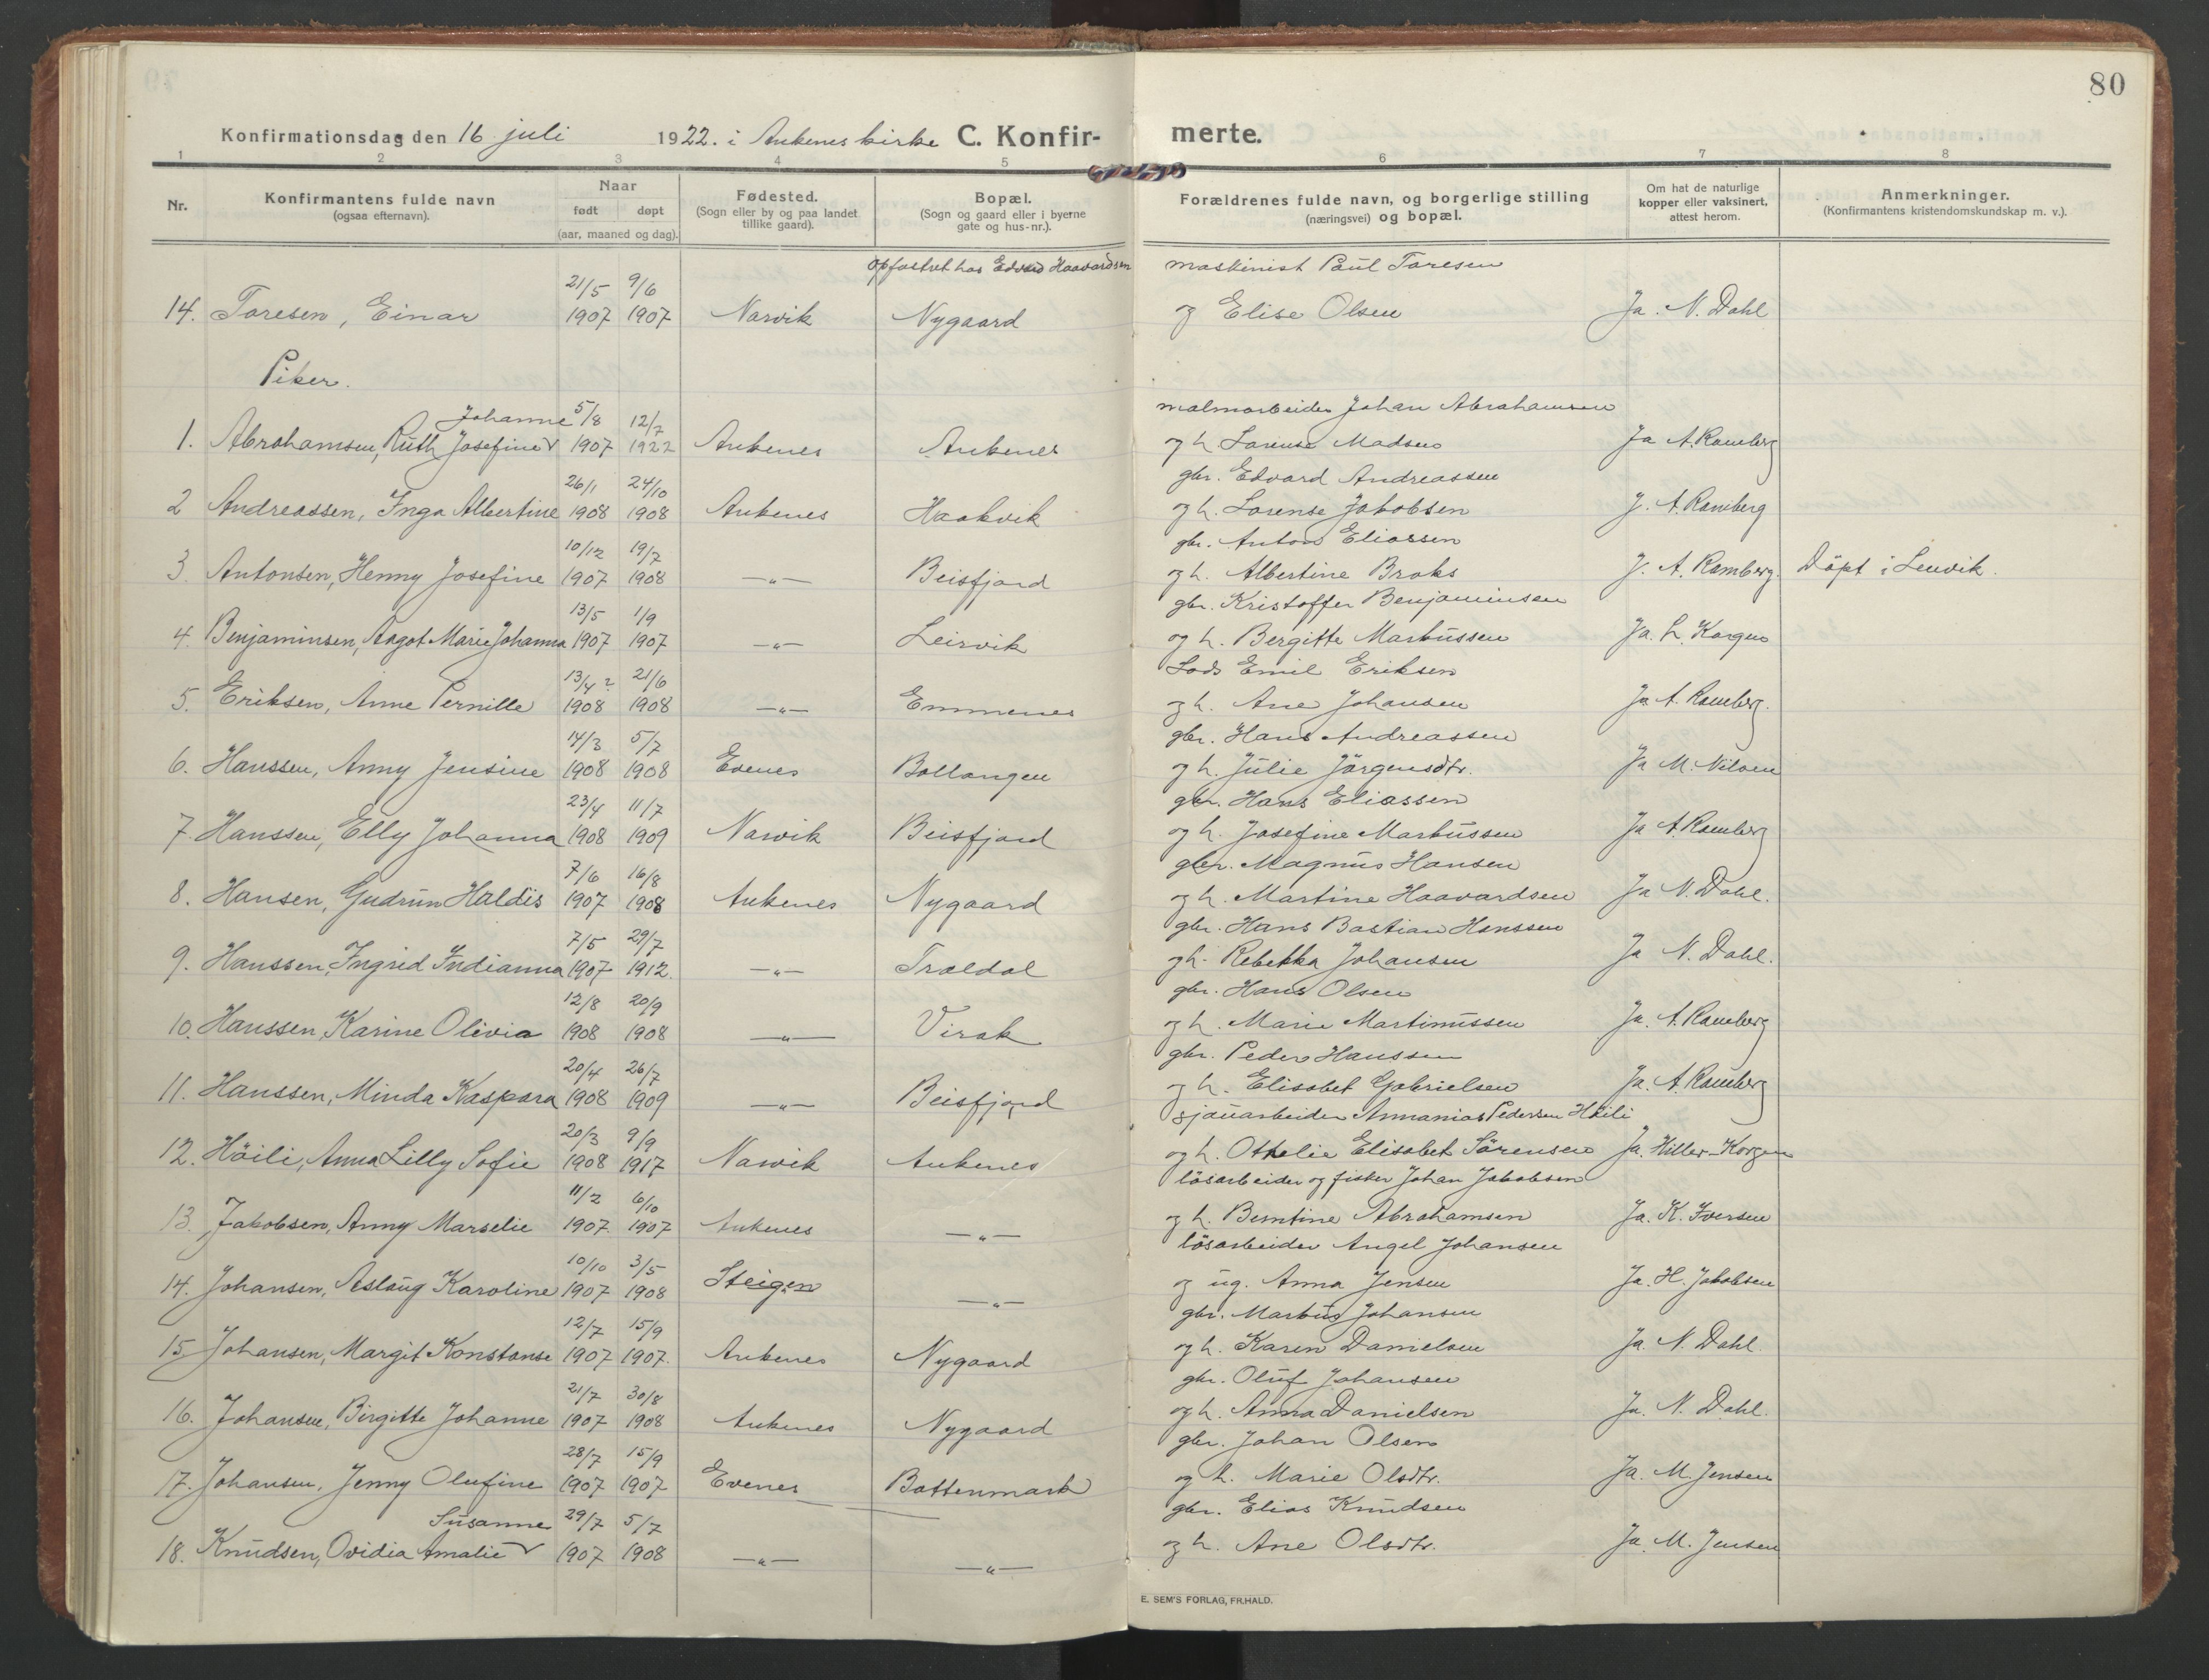 80
Konfirmationsdag den 16 juli 1922. i Ankenes kirke C. Konfirmerte.
1 2 3 4 5 6 7 8
Nr. Konfirmantens fulde navn (ogsaa efternavn). Naar født døpt (aar, maaned og dag). Fødested. (Sogn eller by og paa landet tillike gaard). Bopæl. (Sogn og gaard eller i byerne gate og hus-nr.). Forældrenes fulde navn, og borgerlige stilling (næringsvei) og bopæl. Om hat de naturlige kopper eller vaksinert, attest herom. Anmerkninger. (Konfirmantens kristendomskundskap m. v.).
21/5 9/6 opfostret hos Edvard Haavardsen maskinist Paul Toresen
14. Toresen, Einar 1907 1907 Narvik Nygaard og Elise Olsen Ja. N. Dahl
Piker.
Johanne 5/8 12/7 malmarbeider Johan Abrahamsen
1. Abrahamsen, Ruth Josefine 1907 1922 Ankenes Ankenes og h. Lorense Madsen Ja A. Ramberg
26/1 24/10 gbr. Edvard Andreassen
2 Andreassen, Inga Albertine 1908 1908 Ankenes Haakvik og h. Lorense Jakobsen J. A. Ramberg
10/12 19/7 gbr. Anton Eliassen
3. Antonsen, Henny Josefine 1907 1908 —"— Beisfjord og h. Albertine Broks J. A. Ramberg. Döpt i Lenvik.
13/5 1/9 gbr. Kristoffer Benjaminsen
4. Benjaminsen, Aagot Marie Johanna 1907 1907 —"— Leirvik og h. Bergitte Markussen Ja. L. Korgen
13/4? 21/6 Lods Emil Eriksen
5. Eriksen, Anne Pernille 1908 1908 —"— Emmenes og h. Ane Johansen Ja A. Ramberg.
14/3 5/7 gbr. Hans Andreassen
6. Hanssen, Anny Jensine 1908 1908 Evenes Bollangen og h. Julie Jörgensdtr. Ja M. Nilsen
23/4 11/7 gbr. Hans Eliassen
7. Hanssen, Elly Johanna 1908 1909 Narvik Beisfjord og h. Josefine Markussen Ja A. Ramberg
7/6 16/8 gbr. Magnus Hansen
8. Hansen, Gudrun Haldis 1907 1908 Ankenes Nygaard og h. Martine Haavardsen Ja N. Dahl.
7/5 29/7 gbr. Hans Bastian Hanssen
9. Hanssen, Ingrid Indianna 1907 1912. —"— Traldal og h. Rebekka Johansen Ja N. Dahl.
12/8 20/9 gbr. Hans Olsen
10. Hanssen, Karine Olivia 1908 1908 —"— Virak og h. Marie Martinussen Ja. A. Ramberg
20/4 26/7 gbr. Peder Hanssen
11. Hanssen, Minda Kaspara 1908 1909 —"— Beisfjord og h. Elisabet Gabrielsen Ja. A. Ramberg
20/3 9/9 sjauarbeider Annanias Pedersen Höili
12. Höili, Anna Lilly Sofie 1908 1917 Narvik Ankenes og h. Othelie Elisabet Sörensen Ja. Hiller-Korgen
11/2 6/10 lösarbeider og fisker Johan Jakobsen
13. Jakobsen, Anny Marselie 1907. 1907 Ankenes —"— og h. Berntine Abrahamsen Ja. K. Iversen
10/10 3/5 lösarbeider Angel Johansen
14. Johansen, Aslaug Karoline 1907 1908 Steigen —"— og ug. Anna Jensen Ja. H. Jakobsen
12/7 15/9 gbr. Markus Johansen
15. Johansen, Margit Konstanse 1907 1907. Ankenes Nygaard og h. Karen Danielsen Ja. N. Dahl.
21/7 30/8 gbr. Oluf Johansen
16. Johansen, Birgitte Johanne 1907 1908 Ankenes Nygaard og h. Anna Danielsen Ja. N. Dahl.
28/7 15/9 gbr. Johan Olsen
17. Johansen, Jenny Olufine 1907 1907 Evenes Bottenmark og h. Marie Olsdtr. Ja. M. Jensen
Susanne 29/7 5/7 gbr. Elias Knudsen
18. Knudsen, Ovidia Amalie 1907 1908 —"— —"— og h. Ane Olsdtr. Ja. M. Jensen
E. SEM'S FORLAG, FR.HALD.